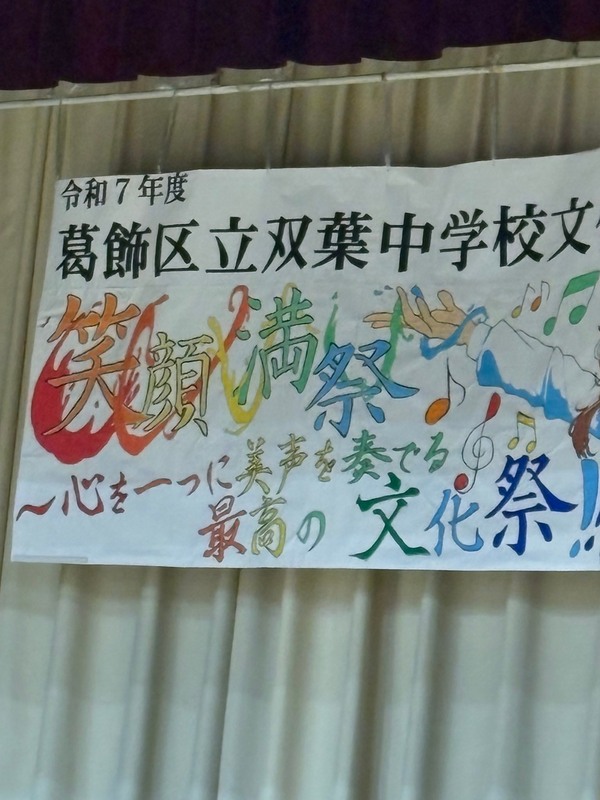 令和7年度
葛飾区立双葉中学校文
笑顔満祭
～心を一つに美声を奏でる
最高の文化祭!!